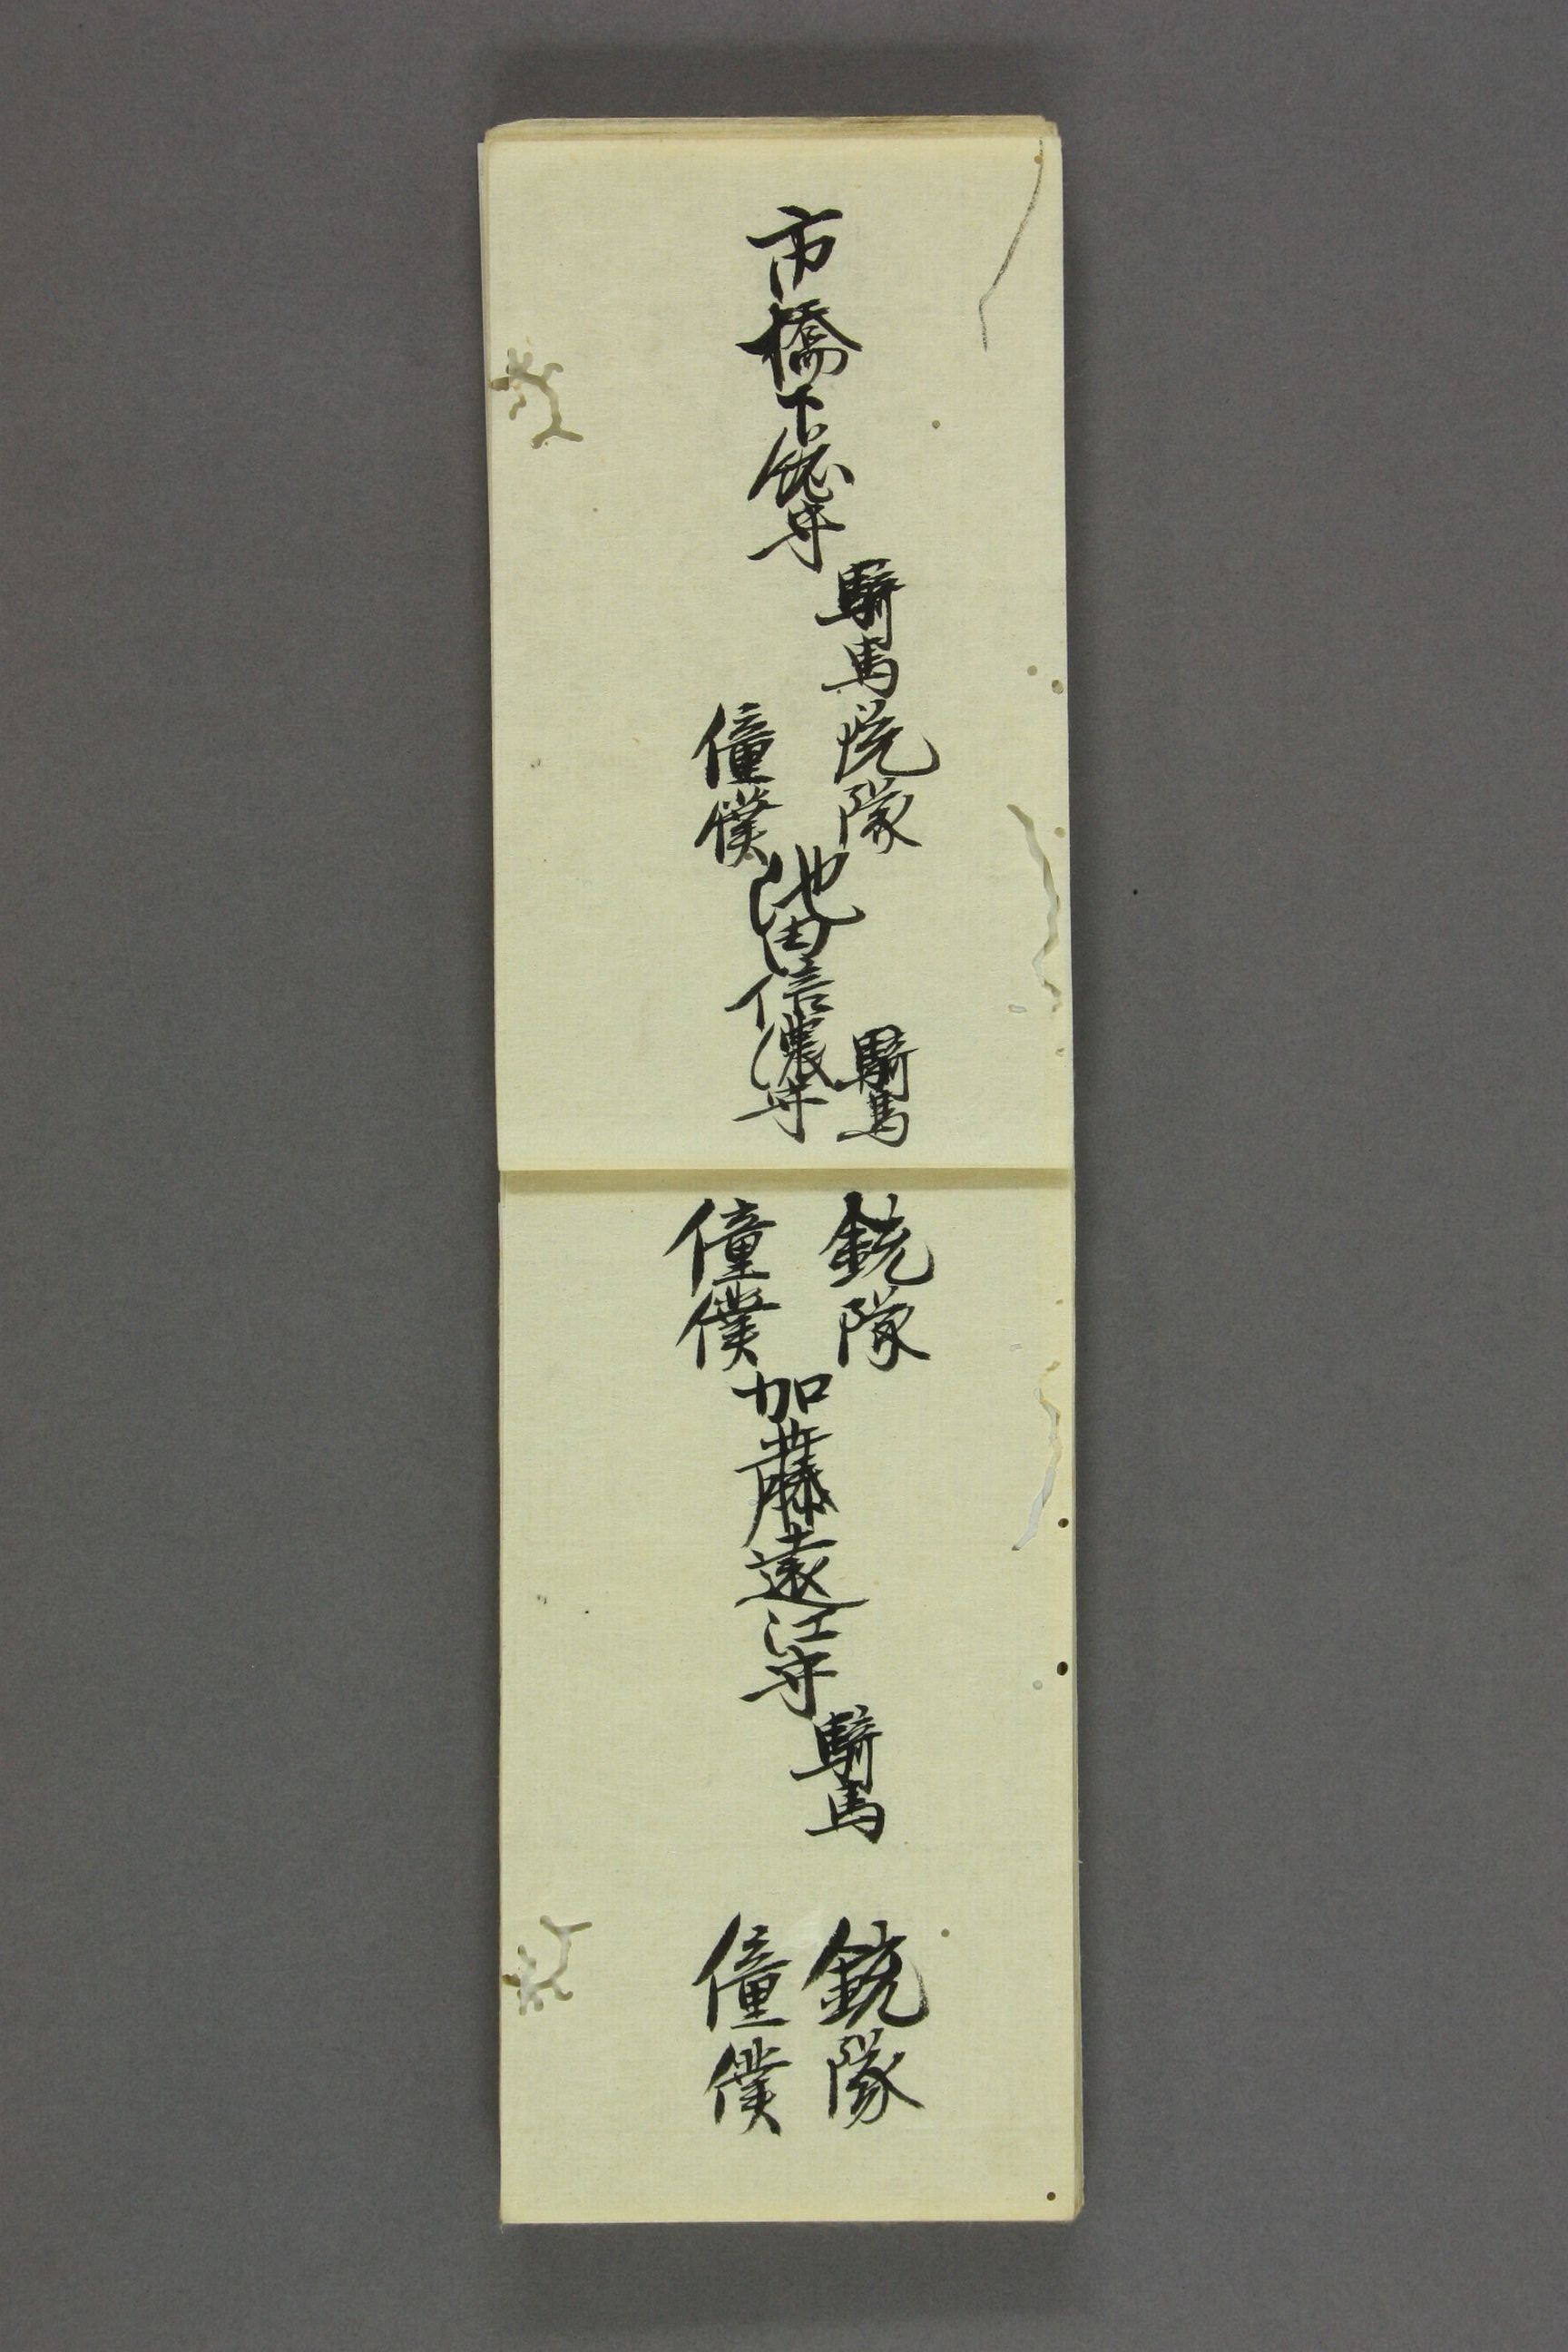 市橋下総守
騎馬
銃隊
僮僕
池田信濃守
騎馬
銃隊
僮僕
加藤遠江守
騎馬
銃隊
僮僕